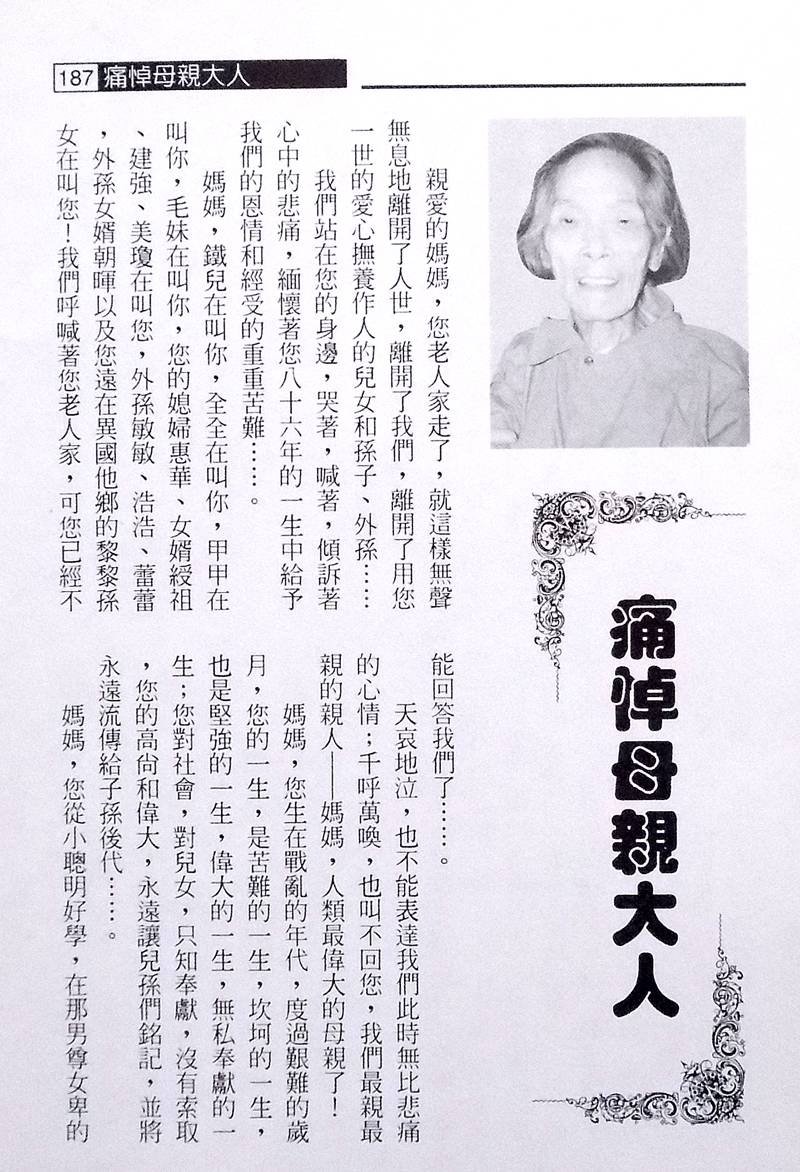 187 痛悼母親大人
痛悼母親大人
親愛的媽媽，您老人家走了，就這樣無聲
無息地離開了人世，離開了我們，離開了用您
一世的愛心撫養作人的兒女和孫子、外孫……
我們站在您的身邊，哭著，喊著，傾訴著
心中的悲痛，緬懷著您八十六年的一生中給予
我們的恩情和經受的重重苦難……。
媽媽，鐵兒在叫你，全全在叫你，甲甲在
叫你，毛妹在叫你，您的媳婦惠華、女婿綬祖
、建強、美瓊在叫您，外孫敏敏、浩浩、蕾蕾
，外孫女婿朝暉以及您遠在異國他鄉的黎黎孫
女在叫您！我們呼喊著您老人家，可您已經不
能回答我們了……。
天哀地泣，也不能表達我們此時無比悲痛
的心情；千呼萬喚，也叫不回您，我們最親最
親的親人——媽媽，人類最偉大的母親了！
媽媽，您生在戰亂的年代，度過艱難的歲
月，您的一生，是苦難的一生，坎坷的一生，
也是堅強的一生，偉大的一生，無私奉獻的一
生；您對社會，對兒女，只知奉獻，沒有索取
，您的高尚和偉大，永遠讓兒孫們銘記，並將
永遠流傳給子孫後代……。
媽媽，您從小聰明好學，在那男尊女卑的